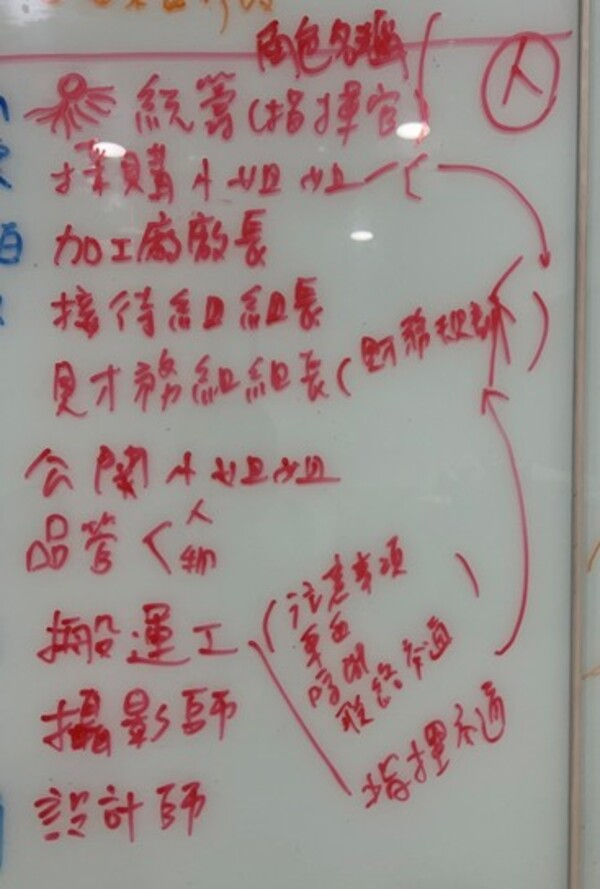 角色名稱
人
統籌(指揮官)
採購小姐姐
加工廠廠長
接待組組長
財務組組長(財務規劃)
公關小姐姐
品管<人
物
搬運工
(注意事項
車台
時間
聯絡交通
指揮交通
攝影師
設計師